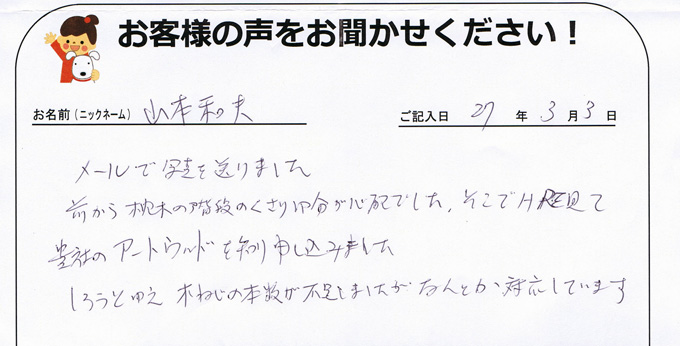 お客様の声をお聞かせください！
お名前（ニックネーム） 山本和夫 ご記入日 27 年 3 月 3 日
メールで写真を送りました
前から枕木の階段のくさり 分が心配でした，そこでHP見て
貴社のアートウッドを知り申し込みました
しろうとゆえ 木ねじの本数が不足しましたが なんとか対応しています